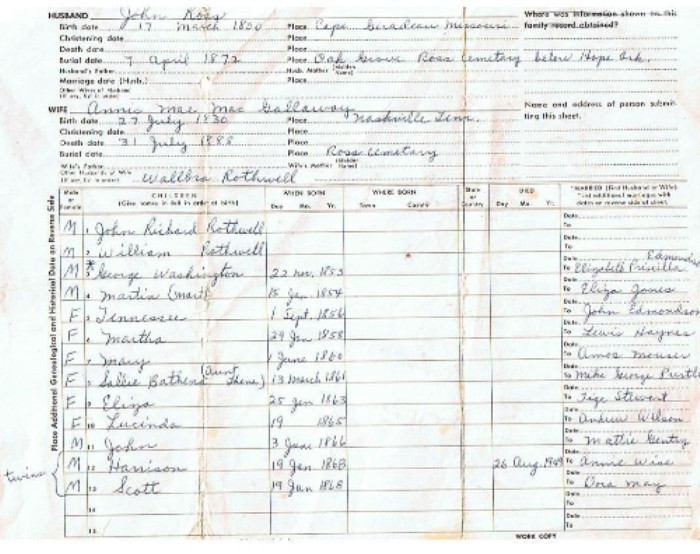 HUSBAND John Ross
Birth date 17 March 1830 Place Cape Girardeau Missouri
Christening date Place
Death date Place
Burial date 7 April 1872 Place Oak Grove Ross Cemetary below Hope Ark.
Husband's Father Husb. Mother (Maiden Name)
Marriage date (Husb.) Place
Where was information shown on this
family record obtained?
WIFE Annis Mae Mac Gallaway
Birth date 27 July 1830 Place Nashville Tenn.
Christening date Place
Death date 31 July 1888 Place
Burial date Place Ross Cemetary
Wife's Father Wife's Mother (Maiden Name)
Wallbra Rothwell
Name and address of person submit-
ting this sheet.
Place Additional Genealogical and Historical Data on Reverse Side
Male or Female CHILDREN WHEN BORN WHERE BORN State or Country DIED
(Give names in full in order of birth) Day Mo. Yr. Town County Day Mo. Yr.
M 1 John Richard Rothwell Date To
M 2 William Rothwell Date To
M * 3 George Washington 22 Nov. 1853 Date To Elizabeth Priscilla
M 4 Martin (Mart) 15 Jan 1854 Date To Eliza Jones
F 5 Tennessee 1 Sept. 1856 Date To John Edmondson
F 6 Martha 29 Jan 1858 Date To Lewis Haynes
F 7 Mary 1 June 1860 Date To Amos Mouser
F 8 Sallie (Aunt 13 March 1861 Date To Mike George
F 9 Eliza 25 Jan 1863 Date To Tige Stewart
F 10 Lucinda 19 1865 Date To Andrew Wilson
M 11 John 3 June 1866 Date To Mattie Gentry
twins M 12 Harrison 19 Jan 1868 26 Aug. 1949 Date To Annie Wise
M 13 Scott 19 Jan 1868 Date To Dora May
Date To
15 Date To
WORK COPY